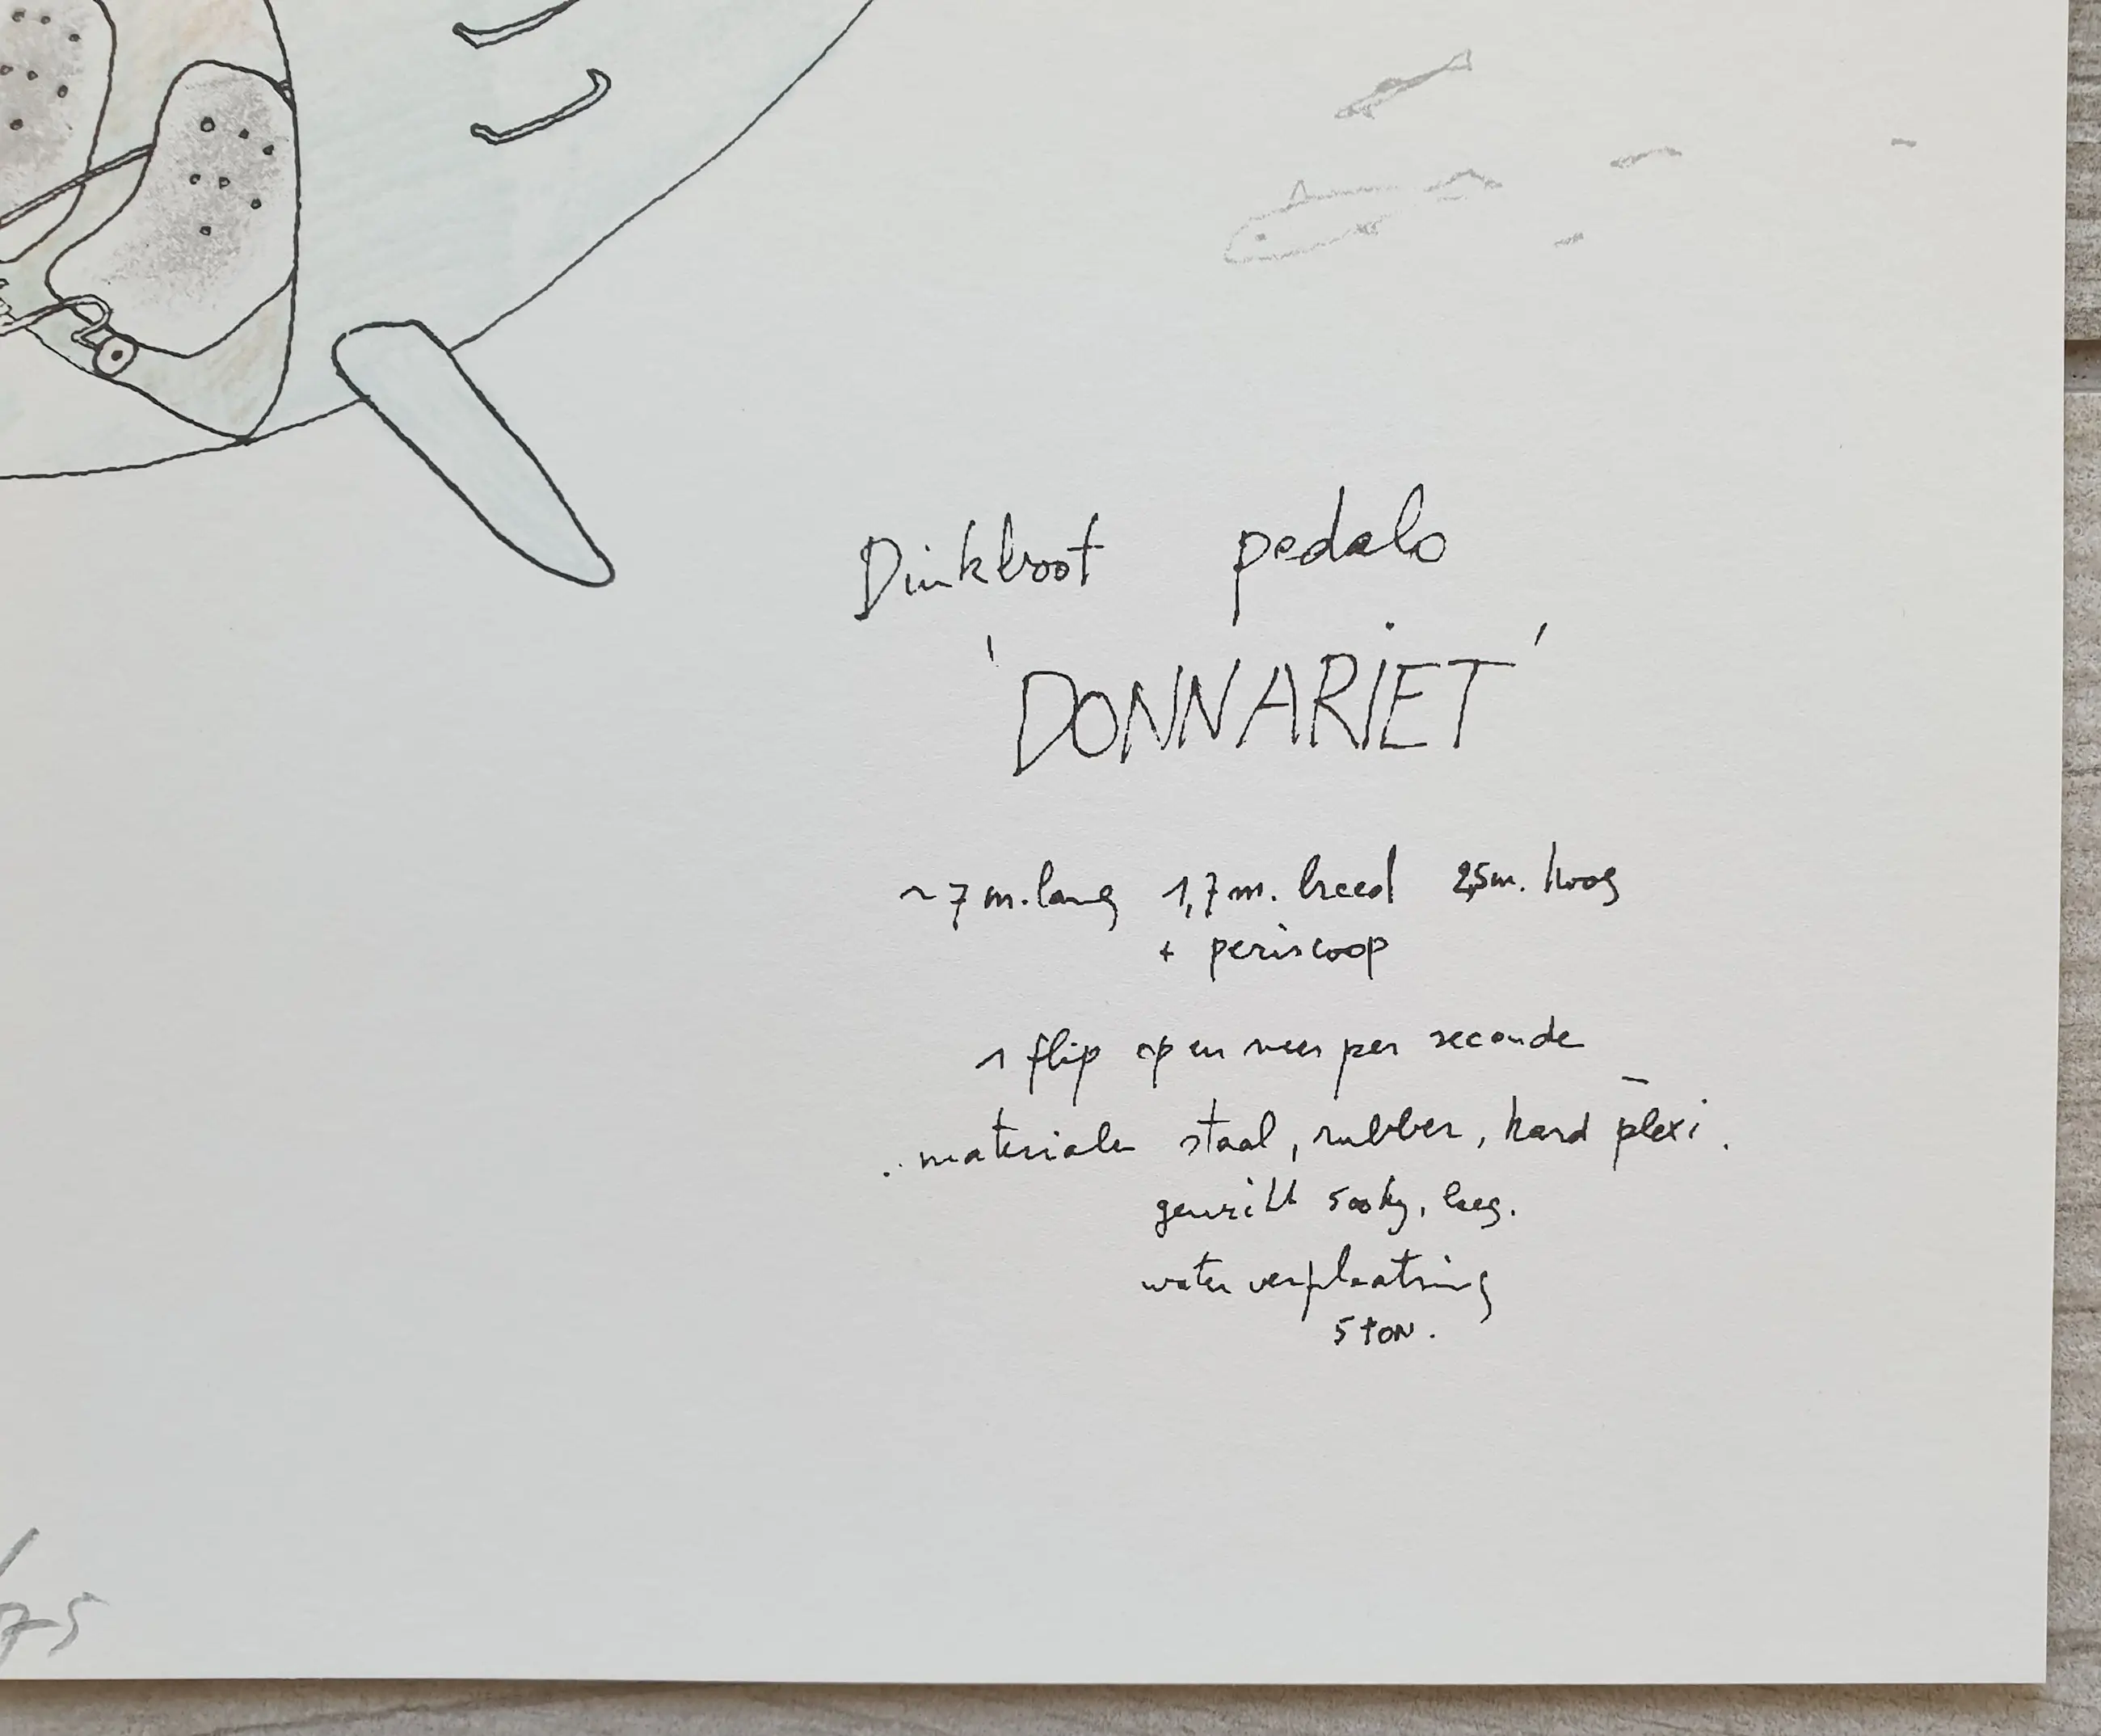 Duikboot pedalo
'DONNARIET'
~ 7 m. lang 1,7 m. breed 2,5m. hoog
+ periscoop
1 flip op en neer per seconde
materialen staal, rubber, hard plexi.
gewicht 500kg, leeg.
water verplaatsing
5 TON.
/75